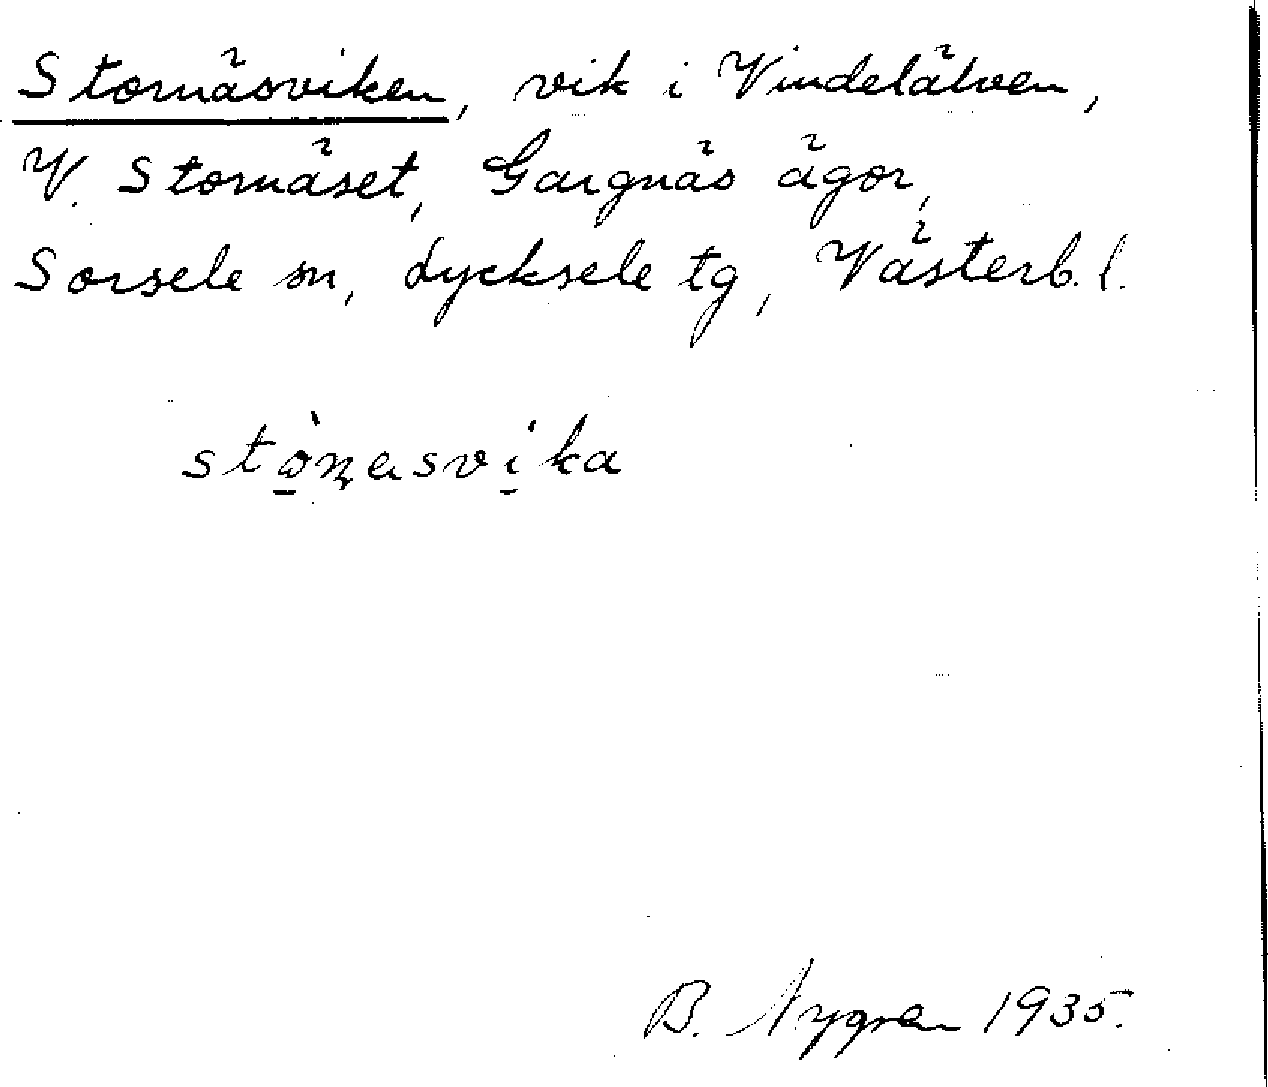 Stornäsviken, vik i Vindelälven,
V. Stornäset, Gargnäs ägor,
Sorsele sn, Lycksele tg, Västerb. l.
stò̱ɳasvi̱ka
B. Nygren 1935.